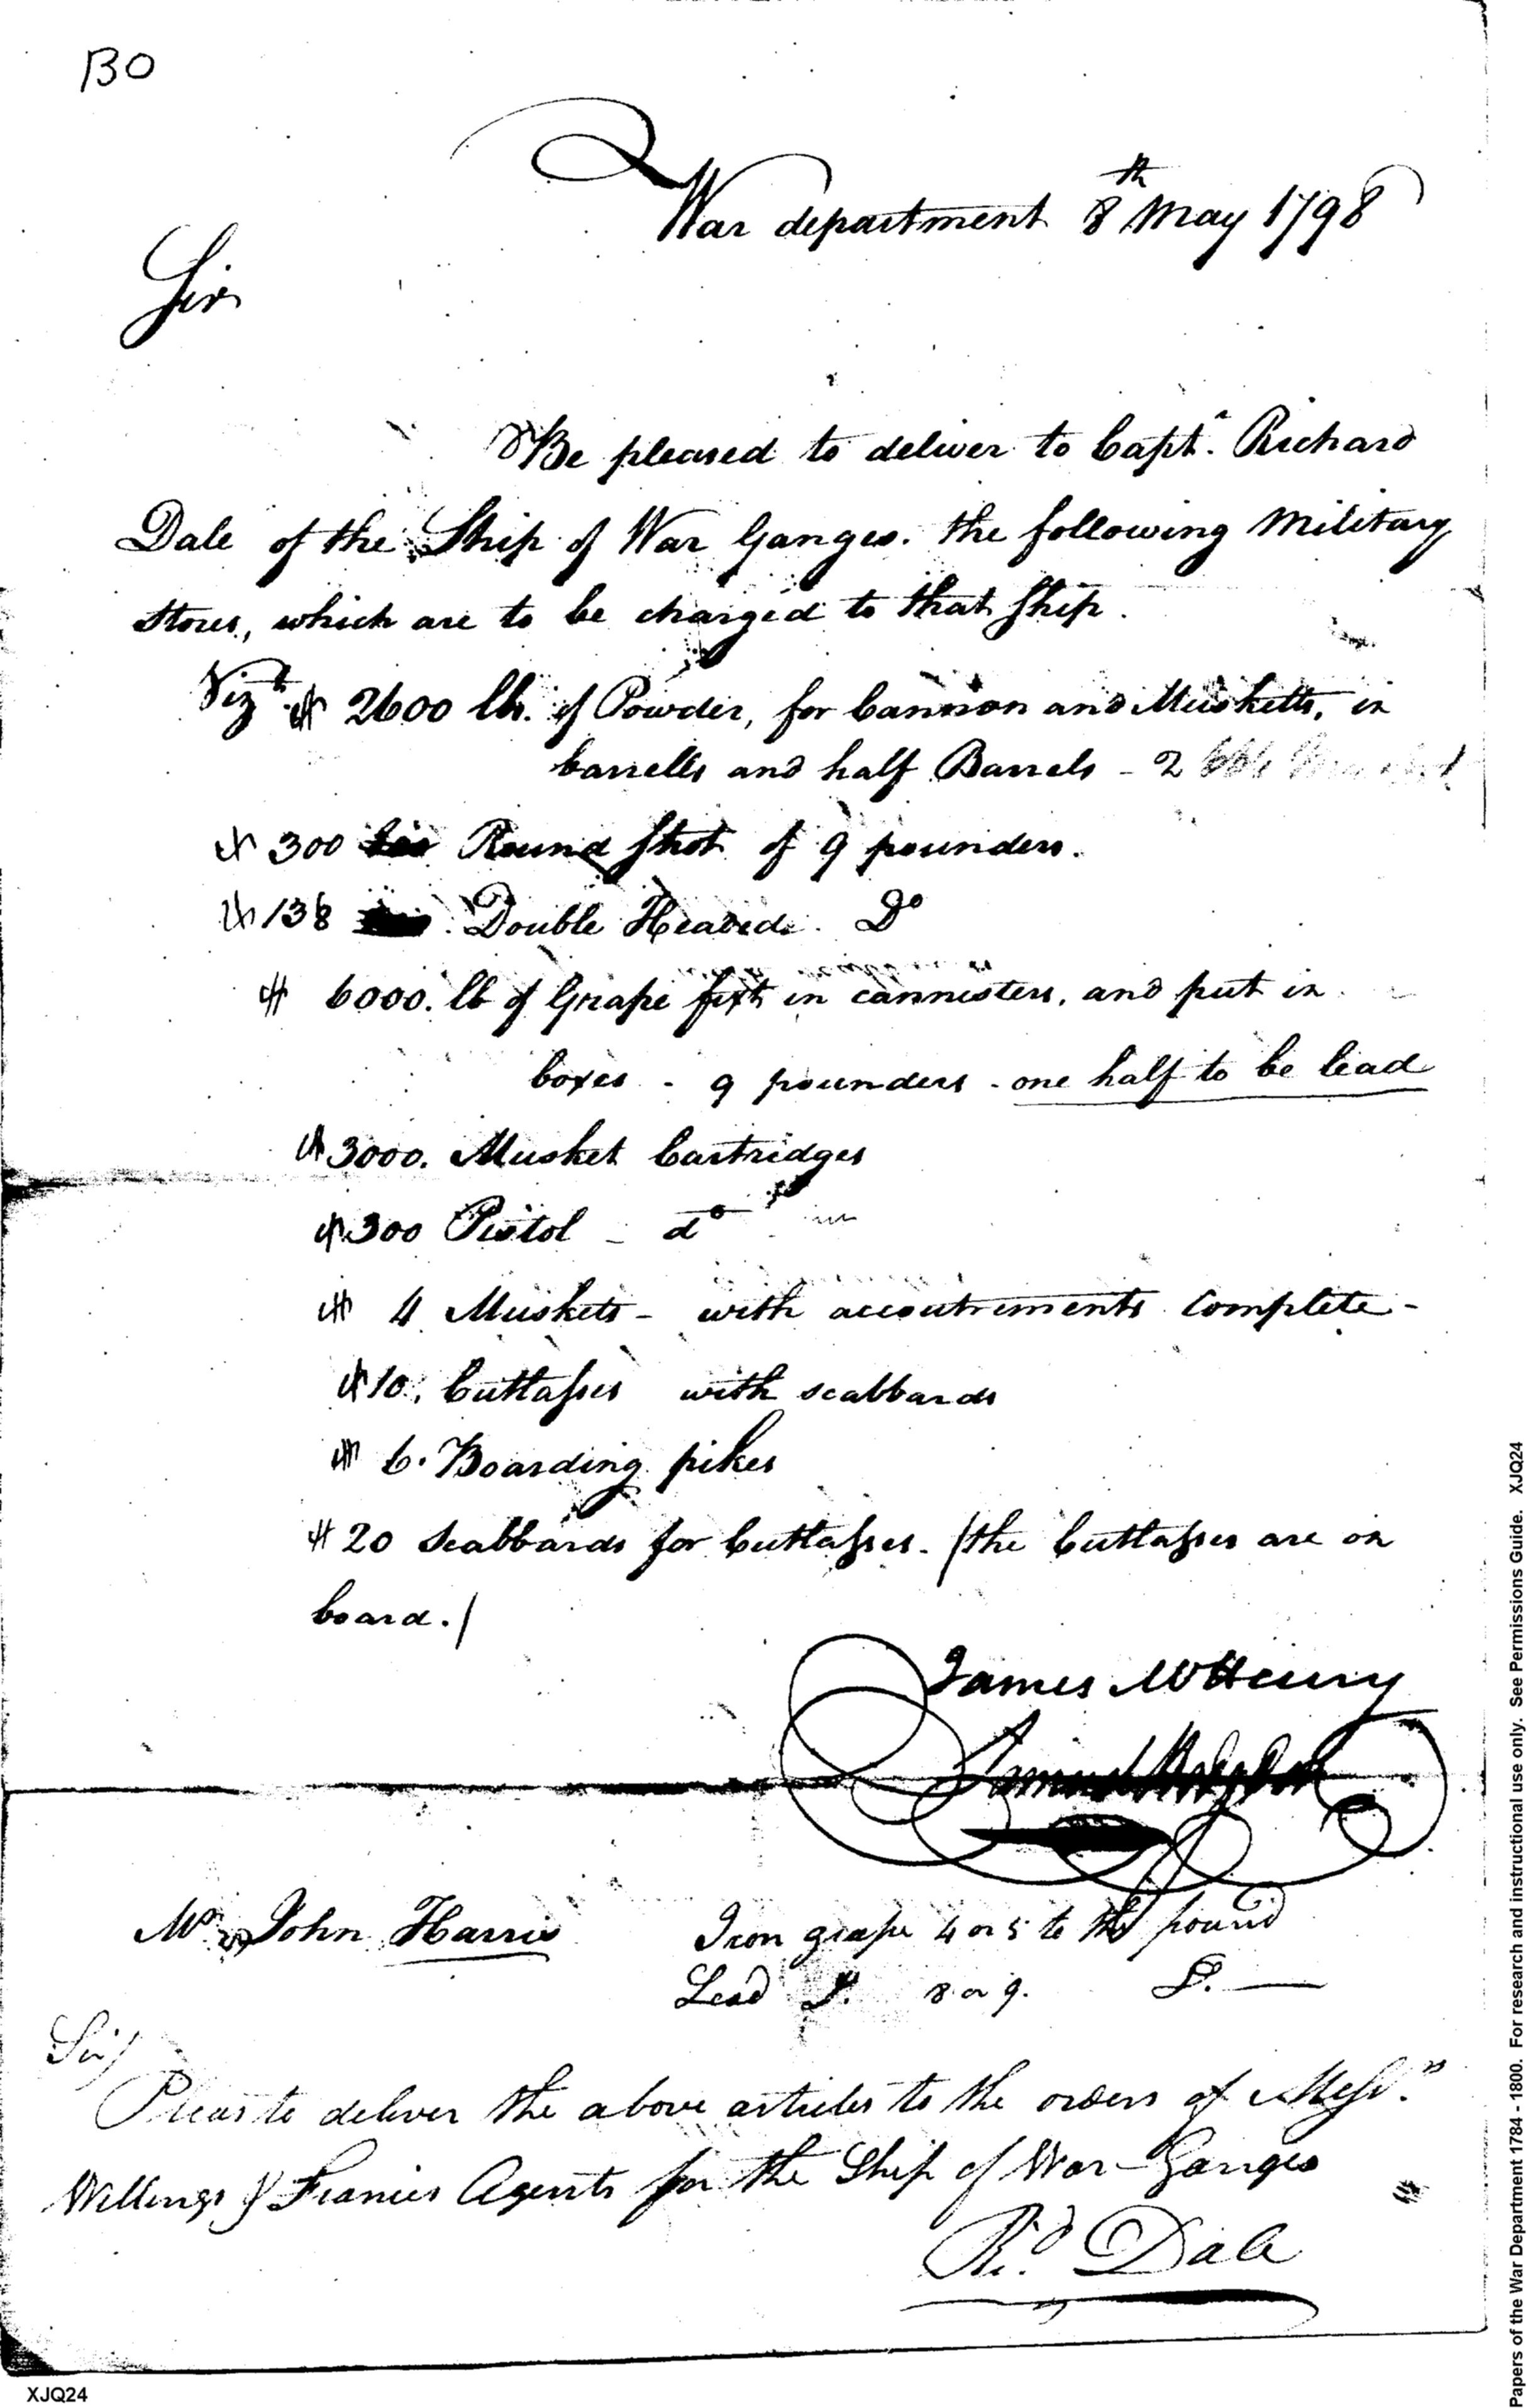 130
War department 8th May 1798
Sir
Be pleased to deliver to Capt. Richard
Dale of the Ship of War Ganges. the following Military
Stores, which are to be charged to that Ship.
Vizt. # 2600 lb. of Powder, for Cannon and Musketts, in
barrells and half Barrels - 2
# 300 Round Shot of 9 pounders.
# 138 Double Headed. Do
# 6000. lb of Grape fixt in cannisters, and put in
boxes - 9 pounders - one half to be lead
# 3000. Musket Cartridges
# 300 Pistol - do
# 4 Muskets - with accoutriments Complete -
# 10. Cuttlasses with scabbards
# 6. Boarding pikes
# 20 Scabbards for Cuttlasses. /the Cuttlasses are on
board./
James McHenry
Samuel Hodgdon
Mr. John Harris
Iron grape 4 or 5 to the pound
Lead Do. 8 or 9. Do. —
Sir/
Pleas to deliver the above articles to the orders of Messrs.
Willings & Francis Agents for the Ship of War Ganges
Rid. Dale
XJQ24
Papers of the War Department 1784 - 1800. For research and instructional use only. See Permissions Guide. XJQ24